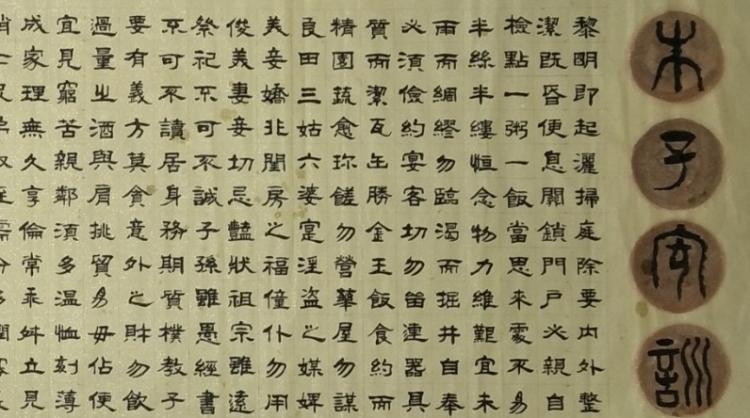 朱子家訓
黎明即起灑掃庭除要內外整
潔既昏便息關鎖門戶必親自
檢點一粥一飯當思來處不易
半絲半縷恒念物力維艱宜未
雨而綢繆勿臨渴而掘井自奉
必須儉約宴客切勿留連器具
質而潔瓦缶勝金玉飯食約而
精園蔬愈珍饈勿營華屋勿謀
良田三姑六婆寔淫盜之媒婢
美妾嬌非閨房之福僮仆勿用
俊美妻妾切忌豔狀祖宗雖遠
祭祀不可不誠子孫雖愚經書
不可不讀居身務期質樸教子
要有義方莫貪意外之財勿飲
過量之酒與肩挑貿易毋佔便
宜見窮苦親鄰須多溫恤刻薄
成家理無久享倫常乖舛立見